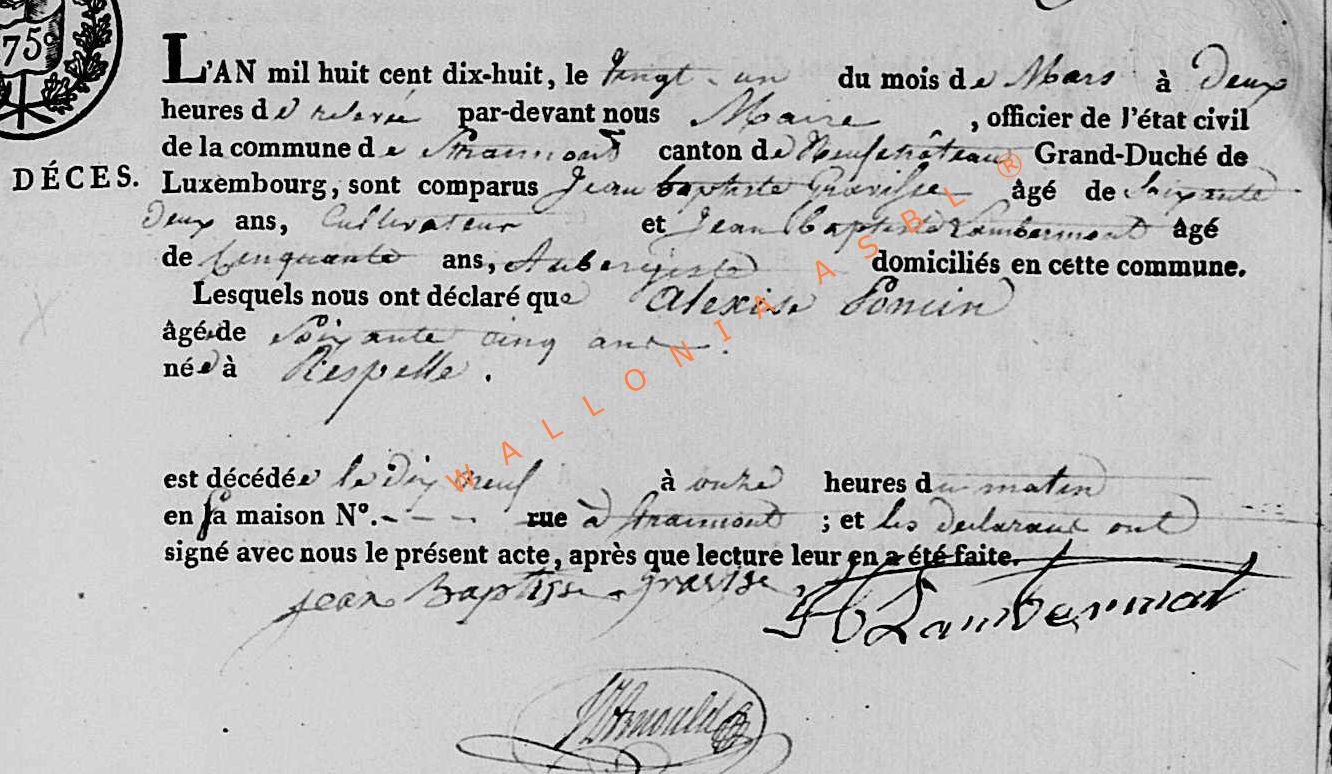 75c
L'AN mil huit cent dix-huit, le vingt-un du mois de Mars à deux
heures de relevée par-devant nous Maire , officier de l'état civil
de la commune de Straimont canton de Neufchâteau Grand-Duché de
DÉCES. Luxembourg, sont comparus Jean baptiste Gravisse âgé de Soixante
deux ans, Cultivateur et Jean Baptiste Lambermont âgé
de Cinquante ans, Aubergiste domiciliés en cette commune.
Lesquels nous ont déclaré que Alexise Poncin
âgé de Soixante cinq ans.
née à Respelle.
est décédée le dix neuf à onze heures du matin
en sa maison N°. - - - rue à Straimont ; et les declarans ont
signé avec nous le présent acte, après que lecture leur en a été faite.
jean Baptisse gravise
Lambermont
WALLONIA ASBL ®